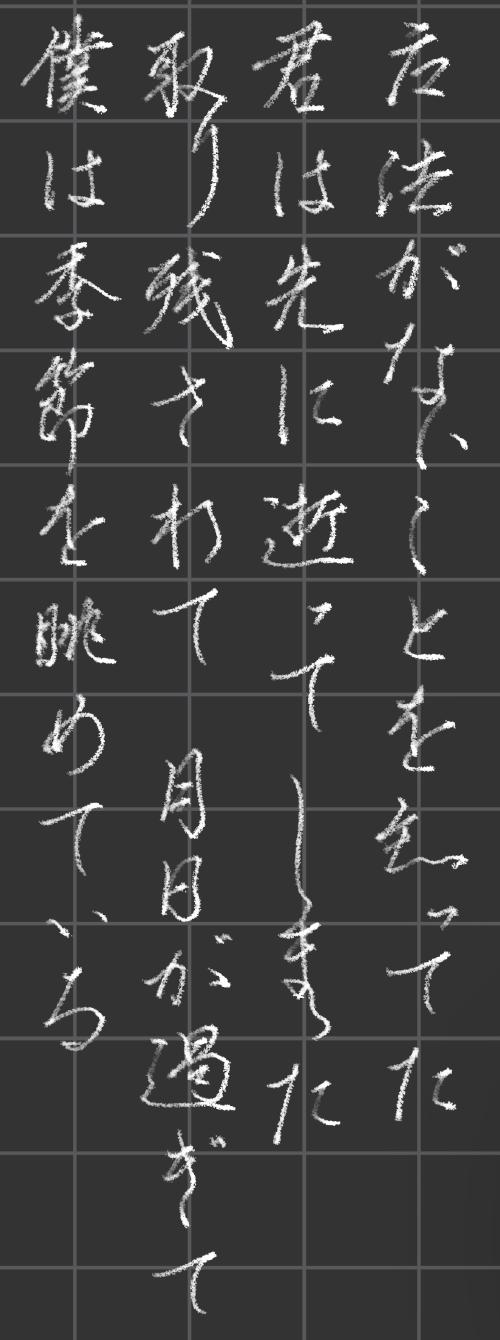 方法がないことを知ってた
君は先に逝って しまった
取り残されて 月日が過ぎて
僕は季節を眺めている